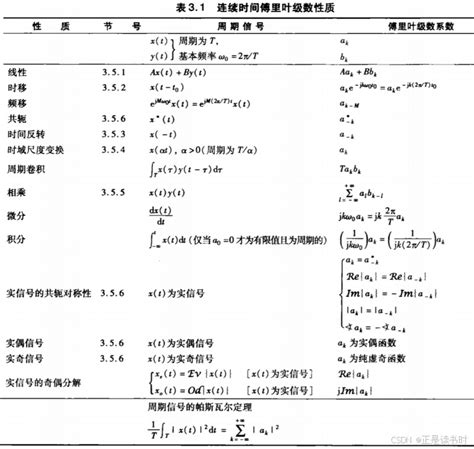 表 3.1 连续时间傅里叶级数性质
性 质 节 号 周 期 信 号 傅里叶级数系数
x(t) } 周期为 T, a_k
y(t) } 基本频率 ω₀ = 2π/T b_k
线性 3.5.1 Ax(t) + By(t) Aa_k + Bb_k
时移 3.5.2 x(t-t₀) a_k e^{-jkω₀t₀} = a_k e^{-jk(2π/T)t₀}
频移 e^{jMω₀t}x(t) = e^{jM(2π/T)t}x(t) a_{k-M}
共轭 3.5.6 x*(t) a*_{-k}
时间反转 3.5.3 x(-t) a_{-k}
时域尺度变换 3.5.4 x(αt), α>0(周期为 T/α) a_k
周期卷积 ∫_T x(τ)y(t-τ)dτ Ta_k b_k
相乘 3.5.5 x(t)y(t) ∑_{l=-∞}^{+∞} a_l b_{k-l}
微分 dx(t)/dt jkω₀a_k = jk (2π/T) a_k
积分 ∫_{-∞}^{t} x(t)dt (仅当 a₀=0 才为有限值且为周期的) (1/jkω₀)a_k = (1/jk(2π/T))a_k
实信号的共轭对称性 3.5.6 x(t)为实信号 { a_k = a*_{-k}
Re{a_k} = Re{a_{-k}}
Im{a_k} = -Im{a_{-k}}
|a_k| = |a_{-k}|
∢a_k = -∢a_{-k}
实偶信号 3.5.6 x(t)为实偶信号 a_k 为实偶函数
实奇信号 3.5.6 x(t)为实奇信号 a_k 为纯虚奇函数
实信号的奇偶分解 { x_e(t) = Ev{x(t)} [x(t)为实信号] Re{a_k}
x_o(t) = Od{x(t)} [x(t)为实信号] jIm{a_k}
周期信号的帕斯瓦尔定理
1/T ∫_T |x(t)|²dt = ∑_{k=-∞}^{+∞} |a_k|²
CSDN @正是读书时